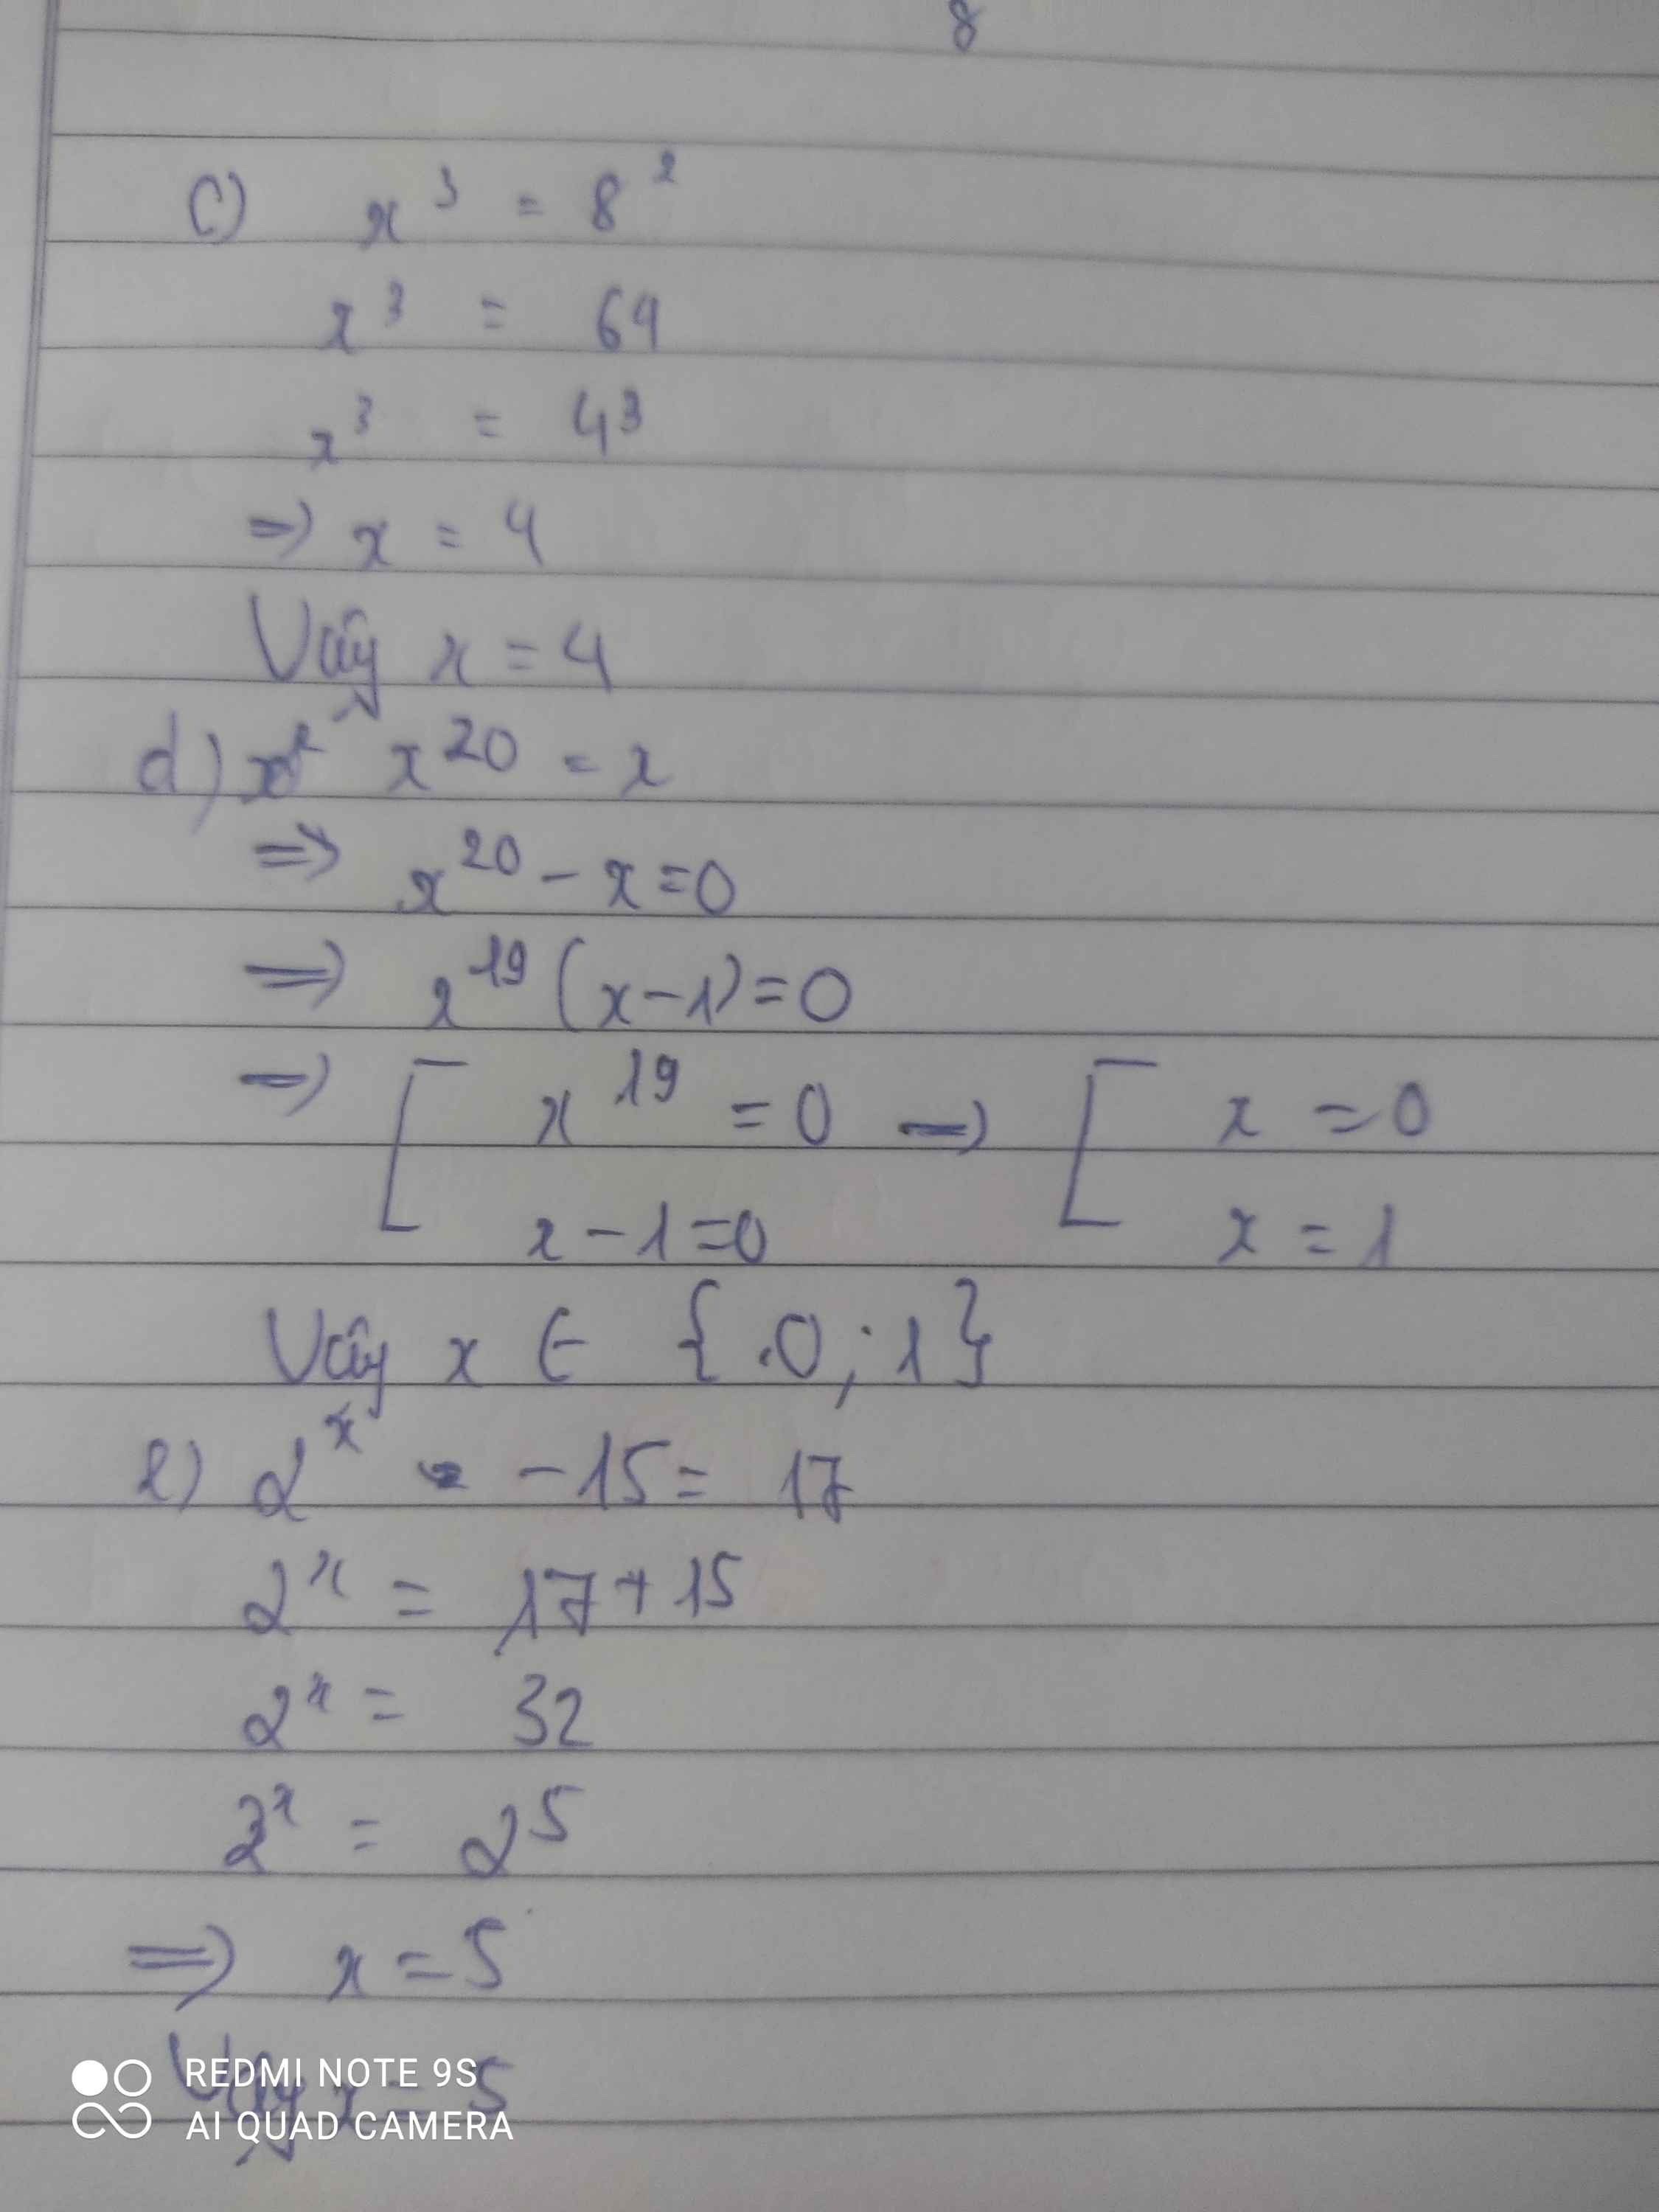 8
c) x³ = 8²
x³ = 64
x³ = 4³
=> x = 4
Vậy x = 4
d) x²⁰ = x
=> x²⁰ - x = 0
=> x¹⁹ (x - 1) = 0
=> [ x¹⁹ = 0 => [ x = 0
x - 1 = 0 x = 1
Vậy x ∈ {0; 1}
e) 2ˣ - 15 = 17
2ˣ = 17 + 15
2ˣ = 32
2ˣ = 2⁵
=> x = 5
Vậy x = 5
REDMI NOTE 9S
AI QUAD CAMERA